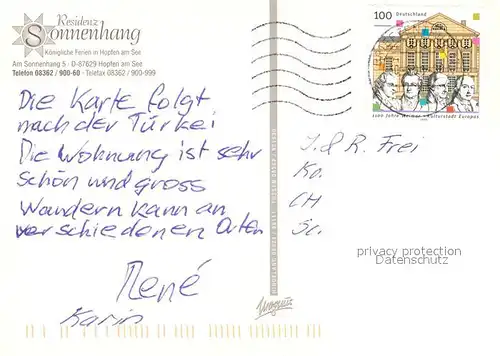 Residenz
Sonnenhang
Königliche Ferien in Hopfen am See
Am Sonnenhang 5 · D-87629 Hopfen am See
Telefon 08362 / 900-60 · Telefax 08362 / 900-999
Die Karte folgt
nach der Türkei
Die Wohnung ist sehr
schön und gross
Wandern kann an
verschiedenen Orten
René
Karin
100 Deutschland
1100 Jahre Weimar - Kulturstadt Europas
J. & R. Frei
Ko.
CH
Sc.
privacy protection
Datenschutz